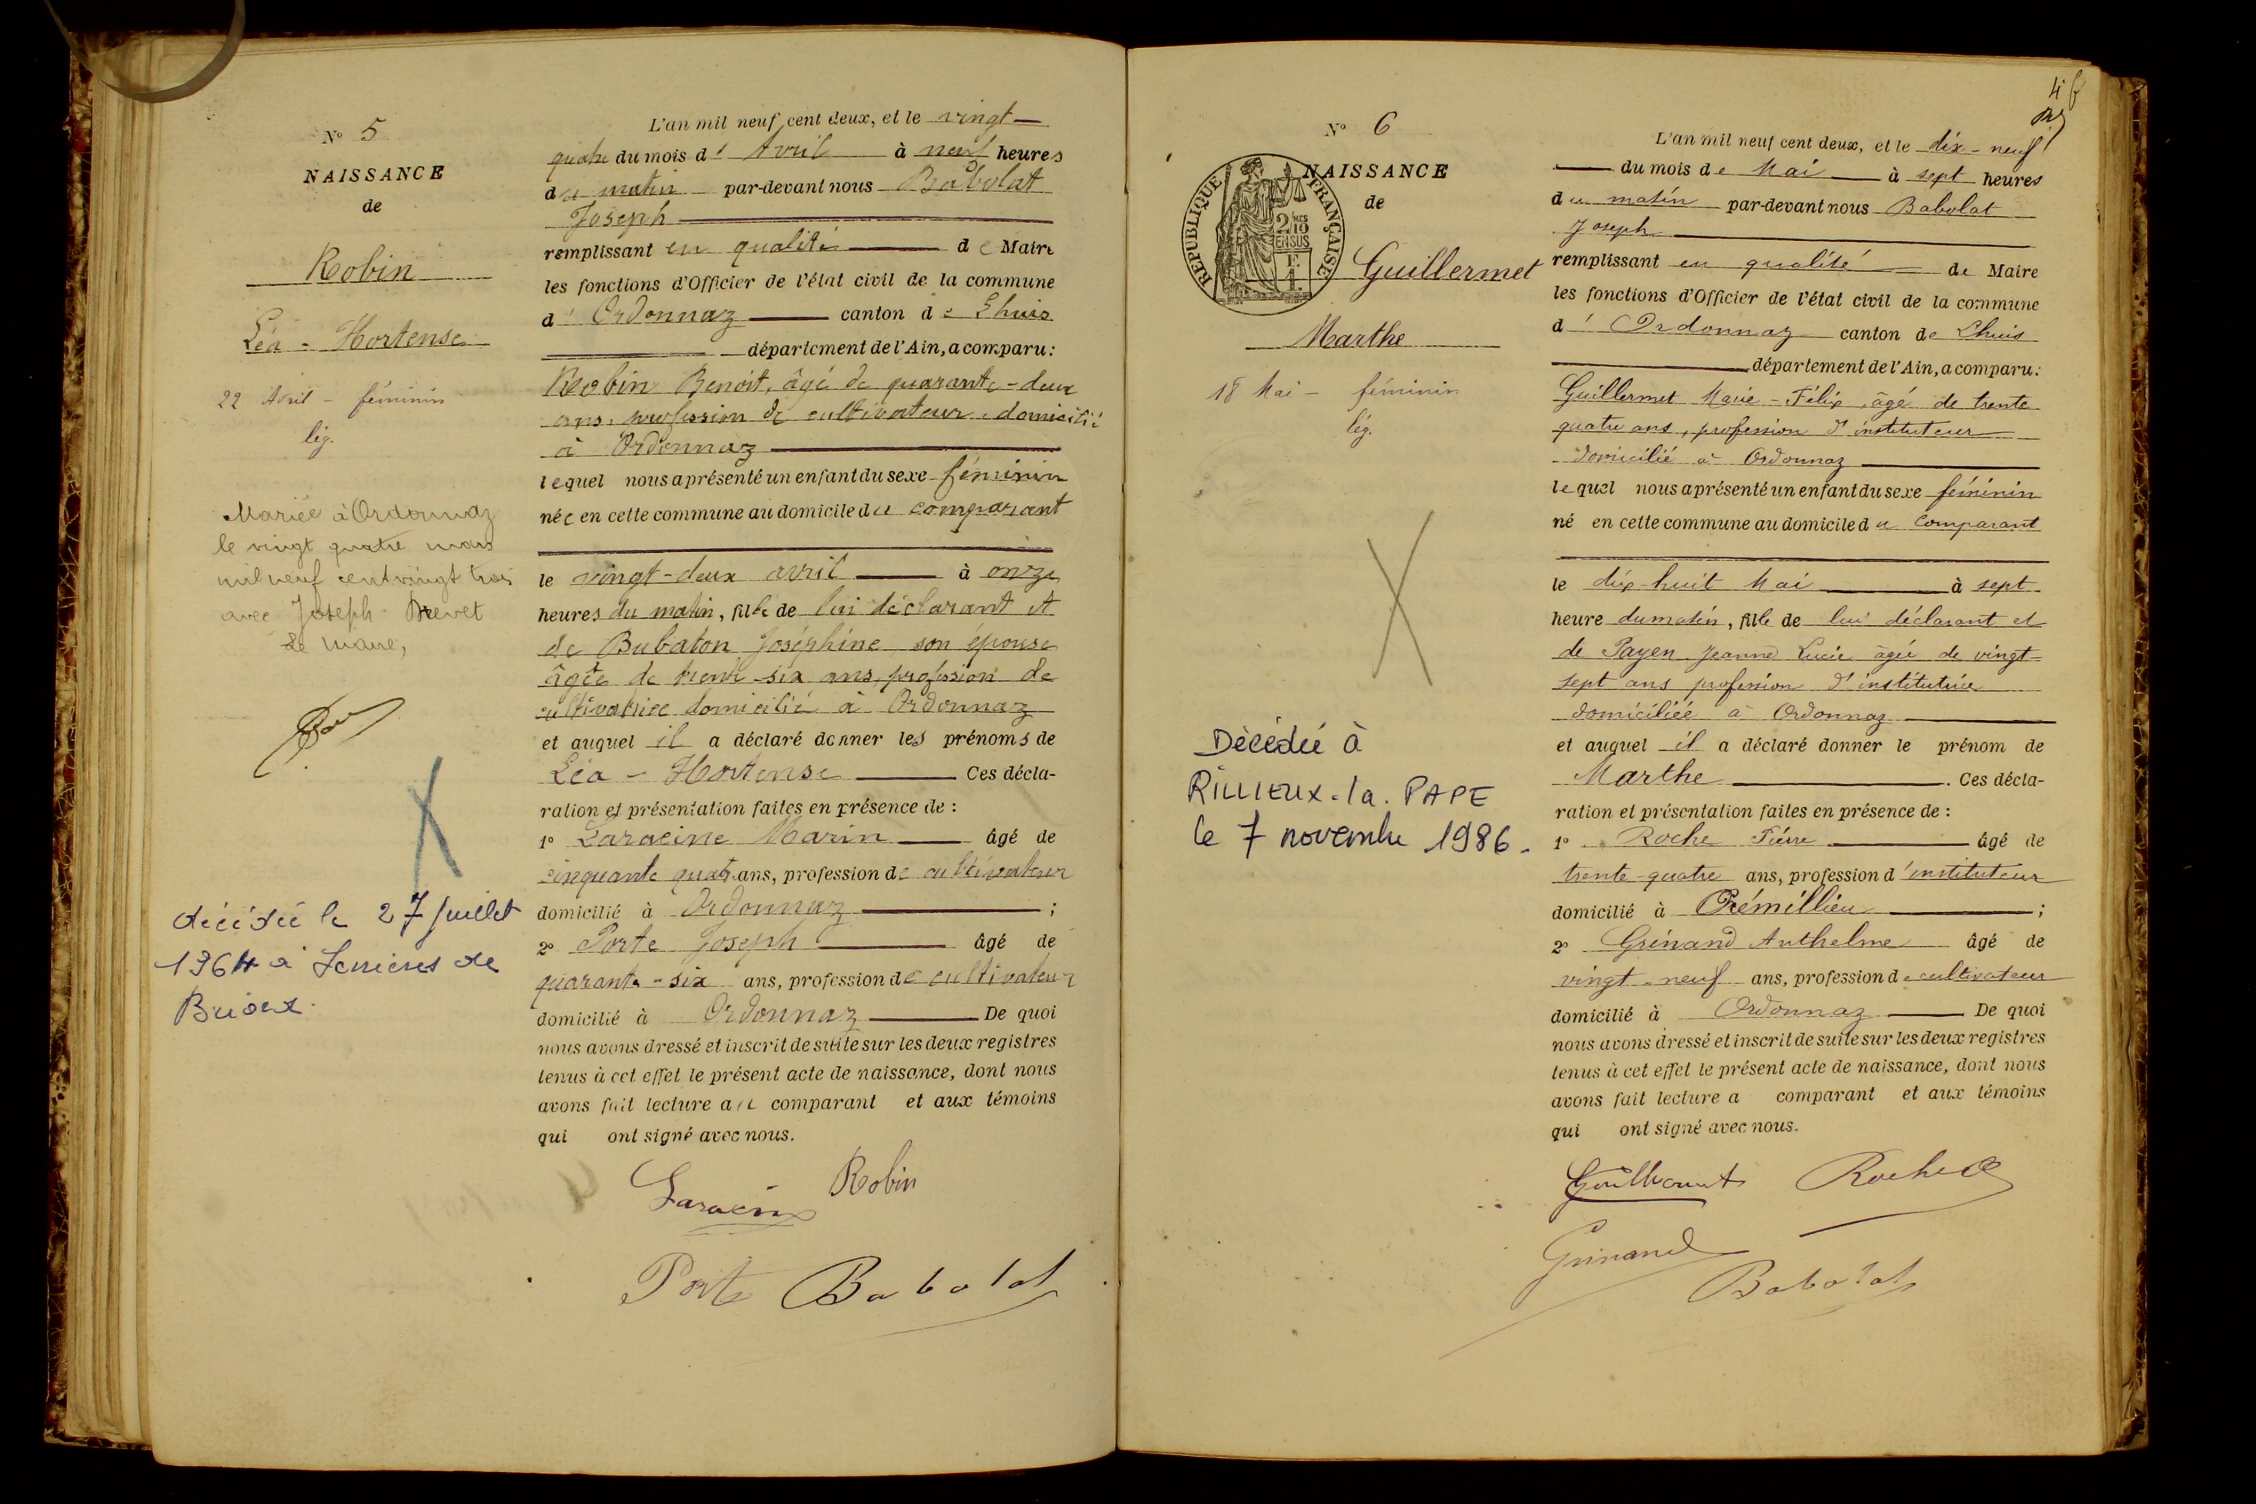 N° 5
NAISSANCE
de
Robin
Léa - Hortense
22 Avril - féminin
lég.
Mariée à Ordonnaz
le vingt quatre mars
mil neuf cent vingt trois
avec Joseph Brevet
Le maire,
décédée le 27 juillet
1964 à Serrières de
Briord.
L'an mil neuf cent deux, et le vingt-
quatre du mois d'Avril à neuf heures
du matin par-devant nous Babolat
Joseph
remplissant en qualité de Maire
les fonctions d'Officier de l'état civil de la commune
d'Ordonnaz canton de Lhuis
département de l'Ain, a comparu:
Robin Benoit, âgé de quarante-deux
ans, profession de cultivateur, domicilié
à Ordonnaz
lequel nous a présenté un enfant du sexe féminin
née en cette commune au domicile du comparant
le vingt-deux avril à onze
heures du matin, fille de lui déclarant et
de Bubaton Joséphine son épouse
âgée de trente-six ans, profession de
cultivatrice domicilié à Ordonnaz
et auquel il a déclaré donner les prénoms de
Léa - Hortense Ces décla-
ration et présentation faites en présence de :
1° Laracine Marin âgé de
cinquante quatr. ans, profession de cultivateur
domicilié à Ordonnaz ;
2° Porte Joseph âgé de
quarante-six ans, profession de cultivateur
domicilié à Ordonnaz De quoi
nous avons dressé et inscrit de suite sur les deux registres
tenus à cet effet le présent acte de naissance, dont nous
avons fait lecture au comparant et aux témoins
qui ont signé avec nous.
Laracine Robin
Porte Babolat
4
N° 6
NAISSANCE
de
RÉPUBLIQUE FRANÇAISE
2/10 EN SUS
Guillermet
Marthe
18 Mai - féminin
lég.
Décédée à
RILLIEUX-la-PAPE
le 7 novembre 1986.
L'an mil neuf cent deux, et le dix-neuf
du mois de Mai à sept heures
du matin par-devant nous Babolat
Joseph
remplissant en qualité de Maire
les fonctions d'Officier de l'état civil de la commune
d'Ordonnaz canton de Lhuis
département de l'Ain, a comparu:
Guillermet Marie-Félix, âgé de trente
quatre ans, profession d'instituteur
domicilié à Ordonnaz
lequel nous a présenté un enfant du sexe féminin
né en cette commune au domicile du comparant
le dix-huit Mai à sept
heure du matin, fille de lui déclarant et
de Payen Jeanne Lucie âgée de vingt-
sept ans profession d'institutrice
domiciliée à Ordonnaz
et auquel il a déclaré donner le prénom de
Marthe . Ces décla-
ration et présentation faites en présence de :
1° Roche Pierre âgé de
trente-quatre ans, profession d'instituteur
domicilié à Prémillieu ;
2° Grinand Anthelme âgé de
vingt-neuf ans, profession de cultivateur
domicilié à Ordonnaz De quoi
nous avons dressé et inscrit de suite sur les deux registres
tenus à cet effet le présent acte de naissance, dont nous
avons fait lecture a comparant et aux témoins
qui ont signé avec nous.
Guillermet Roche
Grinand
Babolat